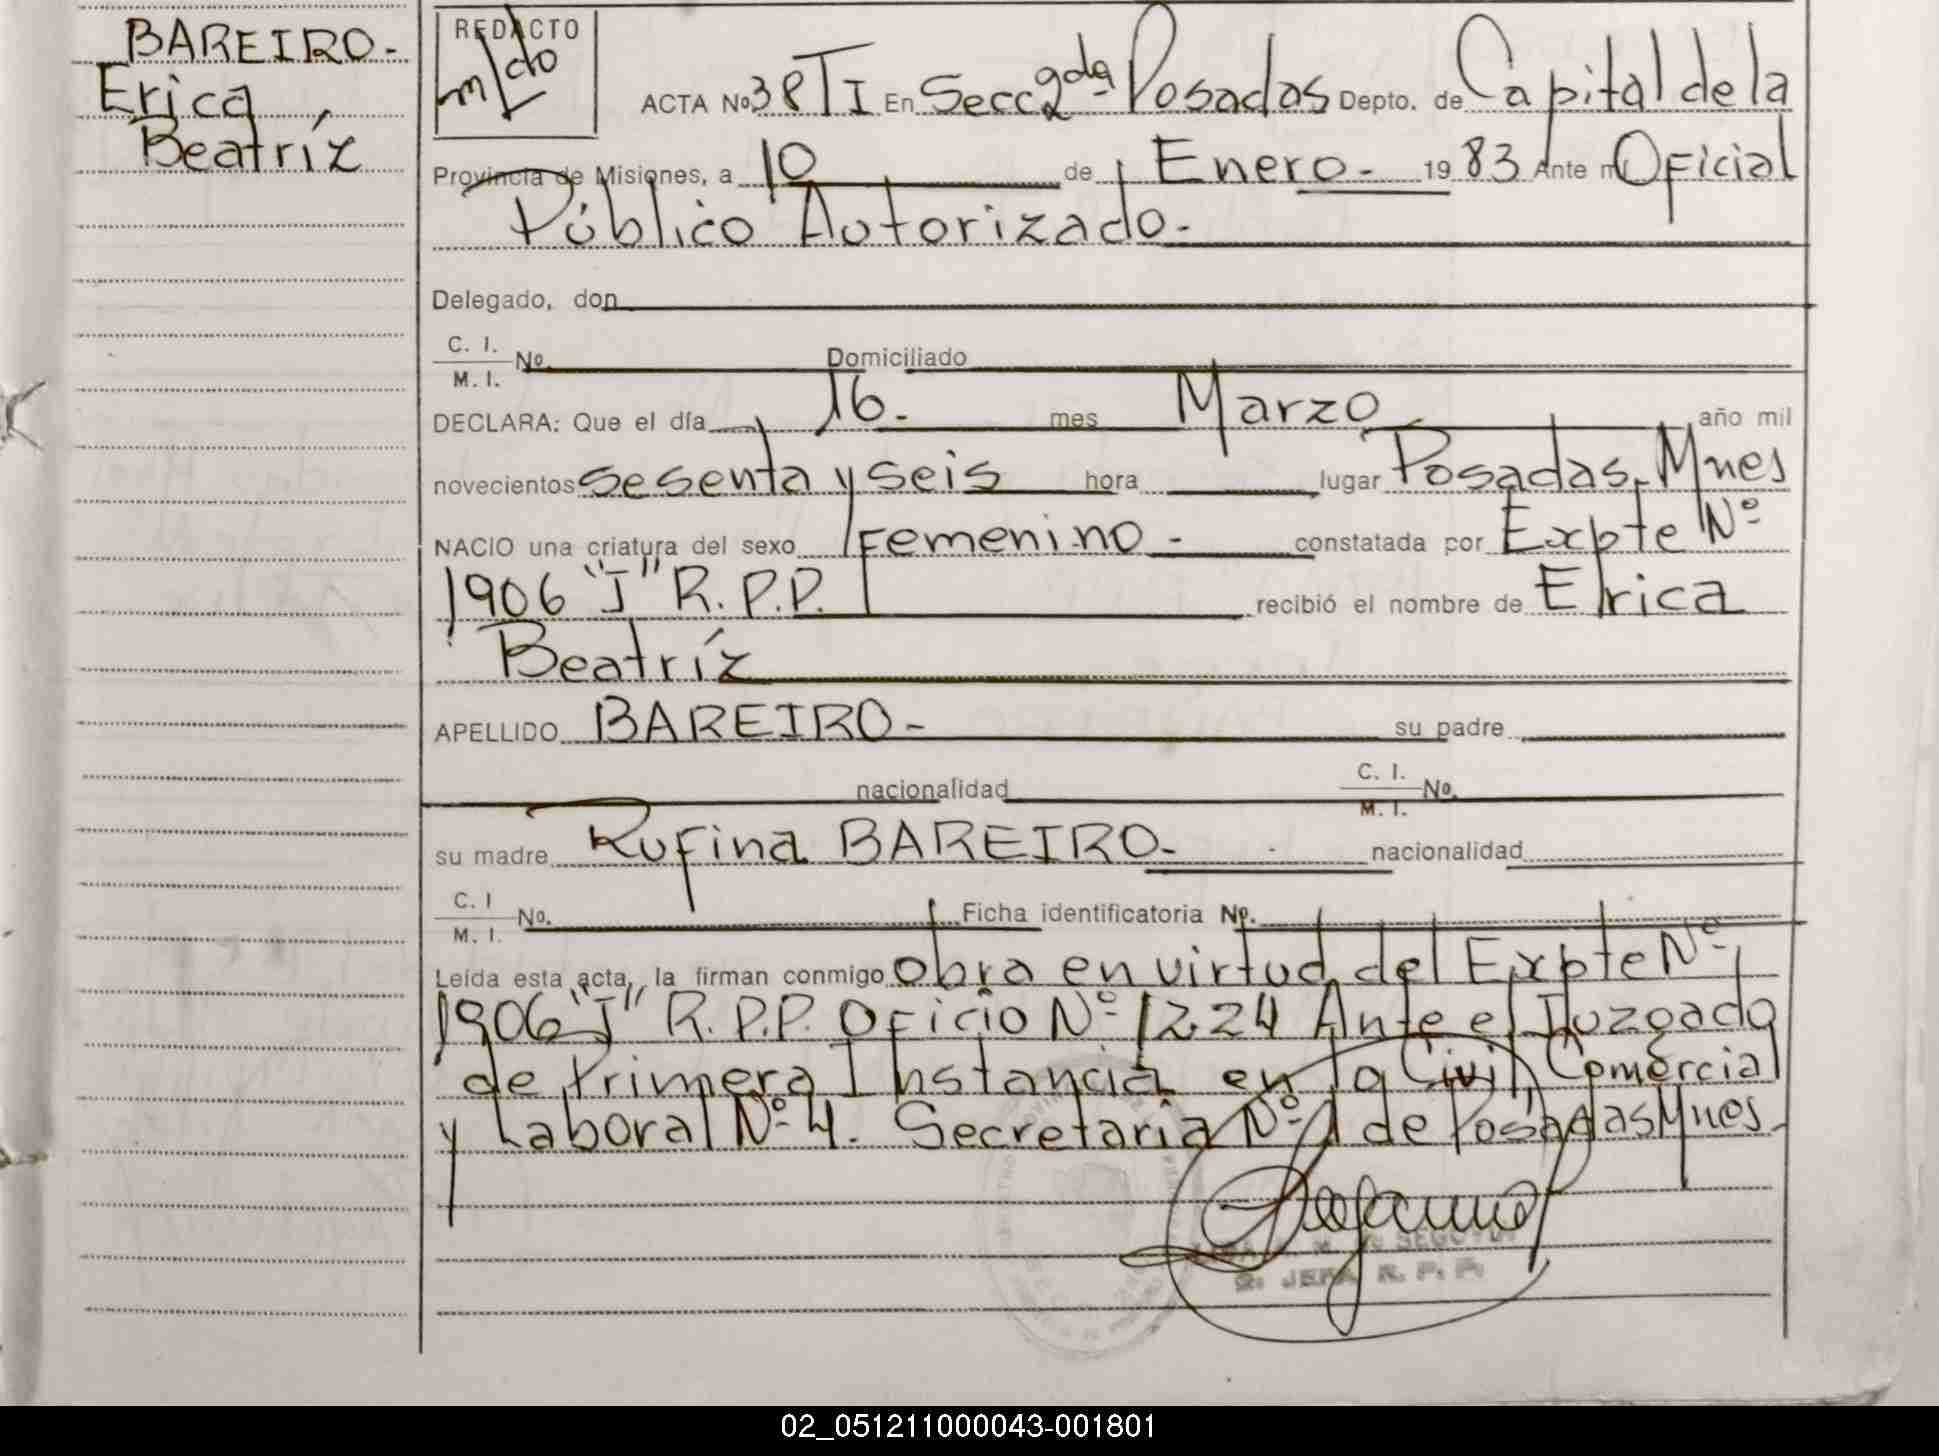 BAREIRO-
Erica
Beatríz
REDACTO
ACTA No 38 TI En Secc 2da Posadas Depto. de Capital de la
Provincia de Misiones, a 10 de Enero - 1983 Ante mi Oficial
Público Autorizado.-
Delegado, don
C. I.
M. I. No. Domiciliado
DECLARA: Que el día 16- mes Marzo año mil
novecientos sesenta y seis hora lugar Posadas, Mnes
NACIO una criatura del sexo Femenino - constatada por Expte Nº
1906 "J" R.P.P. recibió el nombre de Erica
Beatríz
APELLIDO BAREIRO- su padre
nacionalidad C. I.
M. I. No.
su madre Rufina BAREIRO- nacionalidad
C. I
M. I. No. Ficha identificatoria No.
Leída esta acta, la firman conmigo obra en virtud del Expte Nº
1906 "J" R.P.P. Oficio Nº 1224 Ante el Juzgado
de Primera Instancia en lo Civil, Comercial
y Laboral Nº 4. Secretaria Nº 1 de Posadas Mnes.
JEFA R. P. P.
02_051211000043-001801